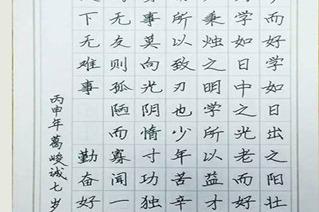 而好学如日出之阳壮
学如日中之光老而好
秉烛之明学所以益才
所以致刃也少年苦辛
事莫向光阴惰寸功独
无友则孤陋而寡闻一
下无难事 勤奋好
丙申年葛峻诚七岁